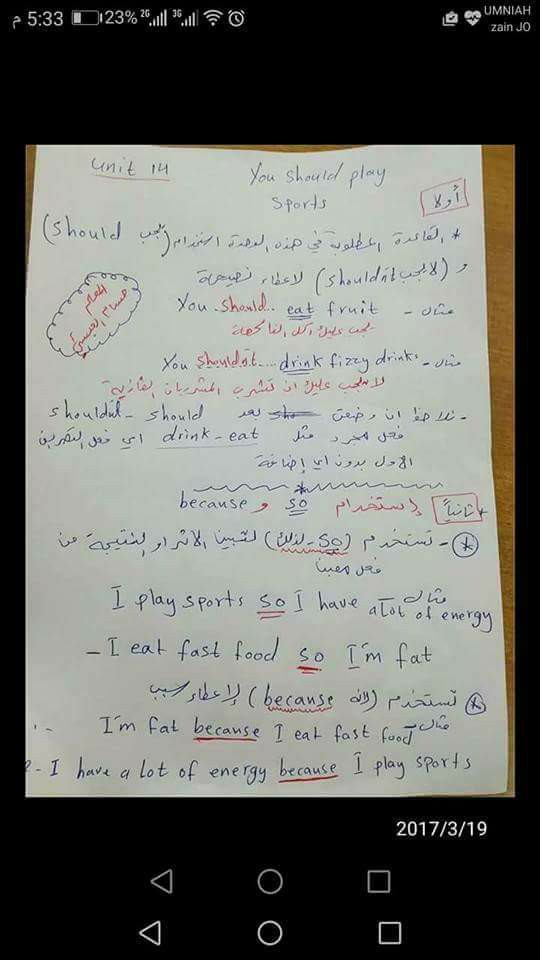 م 5:33 23% 2G 3G UMNIAH
zain JO
unit 14 You should play
sports
أولا
* القاعدة المطلوبة في هذه الوحدة استخدام (يجب should)
و (لا يجب shouldn't) لاعطاء نصيحة
مثال - You should.. eat fruit
يجب عليك اكل الفاكهة
المعلم
حسام العيسى
مثال - You shouldn't.... drink fizzy drinks
لا يجب عليك ان تشرب المشروبات الغازية
- نلاحظ ان وضعت بعد should - shouldn't
فعل مجرد مثل drink - eat اي فعل التصريف
الاول بدون اي إضافة
* ثانياً إستخدام so و because
* - تستخدم (so - لذلك) لتبين الاثر او النتيجة من
فعل معين
مثال I play sports so I have a lot of energy
- I eat fast food so I'm fat
* تستخدم (لانه because) لإعطاء سبب
مثال I'm fat because I eat fast food
2 - I have a lot of energy because I play sports
2017/3/19